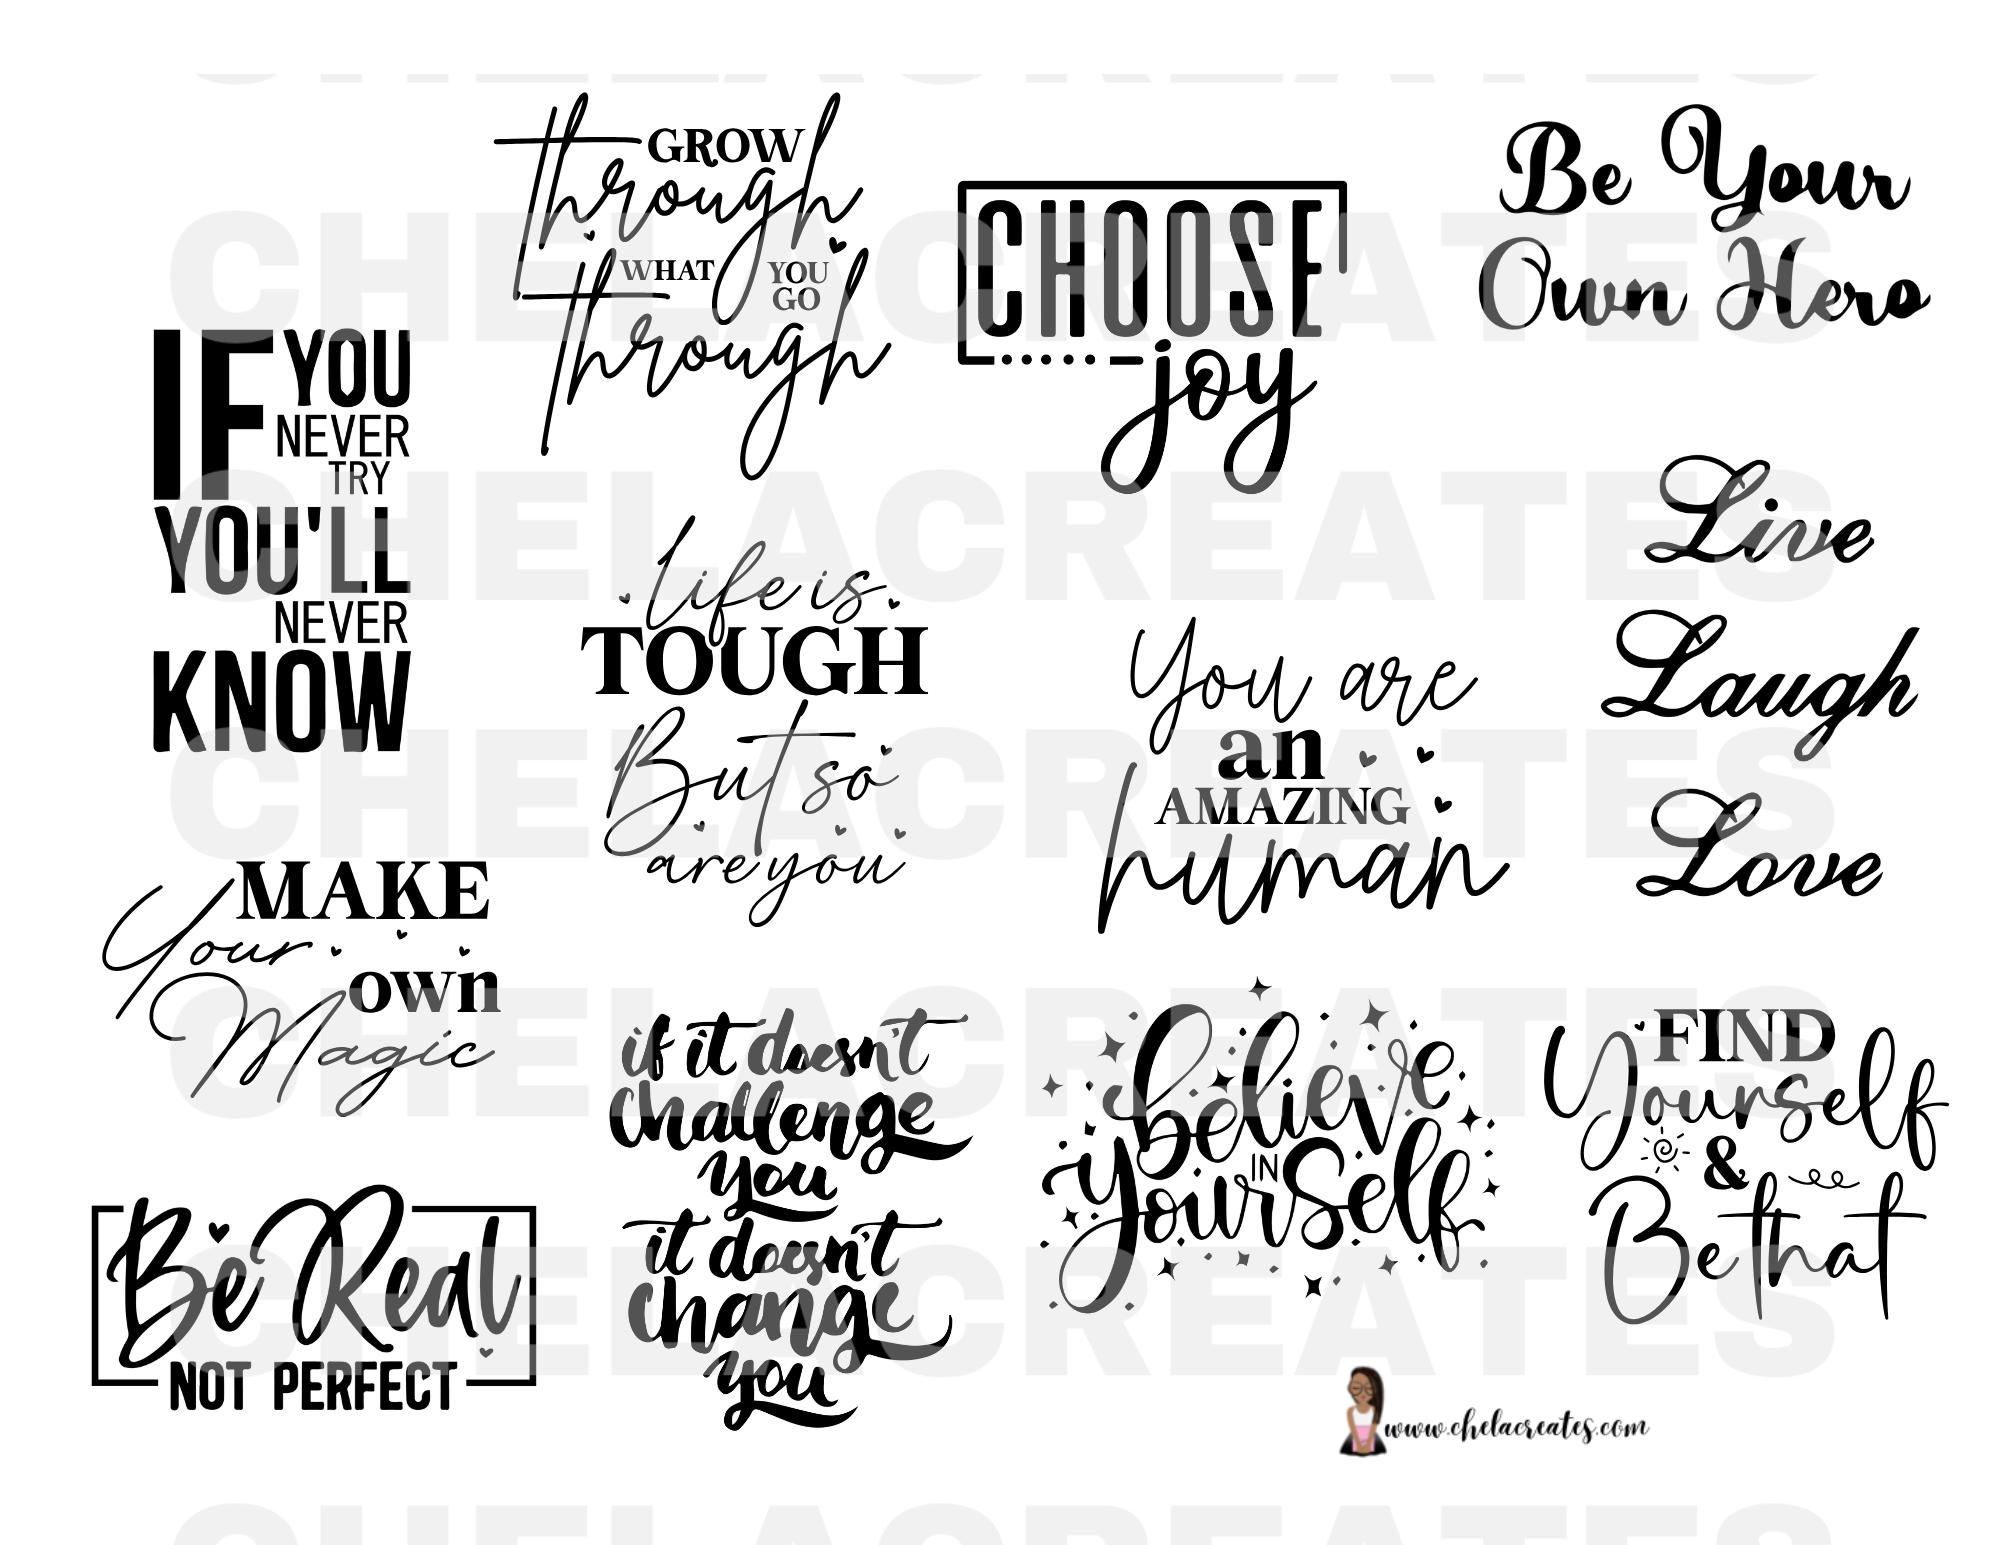 GROW
through
WHAT YOU
GO
through
CHOOSE
joy
Be Your
Own Hero
IF YOU
NEVER
TRY
YOU'LL
NEVER
KNOW
Life is
TOUGH
But so
are you
You are
an
AMAZING
human
Live
Laugh
Love
MAKE
Your own
Magic
if it doesn't
challenge
you
it doesn't
change
you
believe
IN
yourself
FIND
Yourself
&
Be that
Be Real
NOT PERFECT
www.chelacreates.com
CHELACREATES
CHELACREATES
CHELACREATES
CHELACREATES
CHELACREATES
CHELACREATES
CHELACREATES